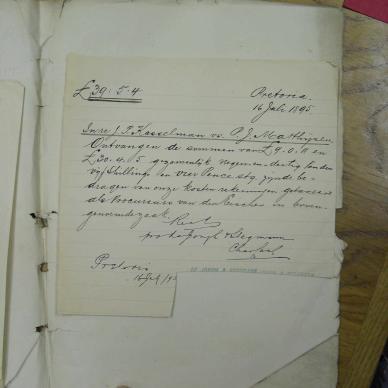 £39.5.4
Pretoria.
16 Juli 1895.
In re J. P. Kasselman vs. P. J. Matthijsen
Ontvangen de sommen van £9.0.11 en
£30.4.5 gezamenlijk negen en dertig ponden
vijf shillings en vier Pence stg, zijnde be-
dragen van onze kosten rekeningen getaxeerd
als Procureurs van den Eischer in boven-
genoemde zaak.
pro Rooth &
Pretoria
16 Juli /95